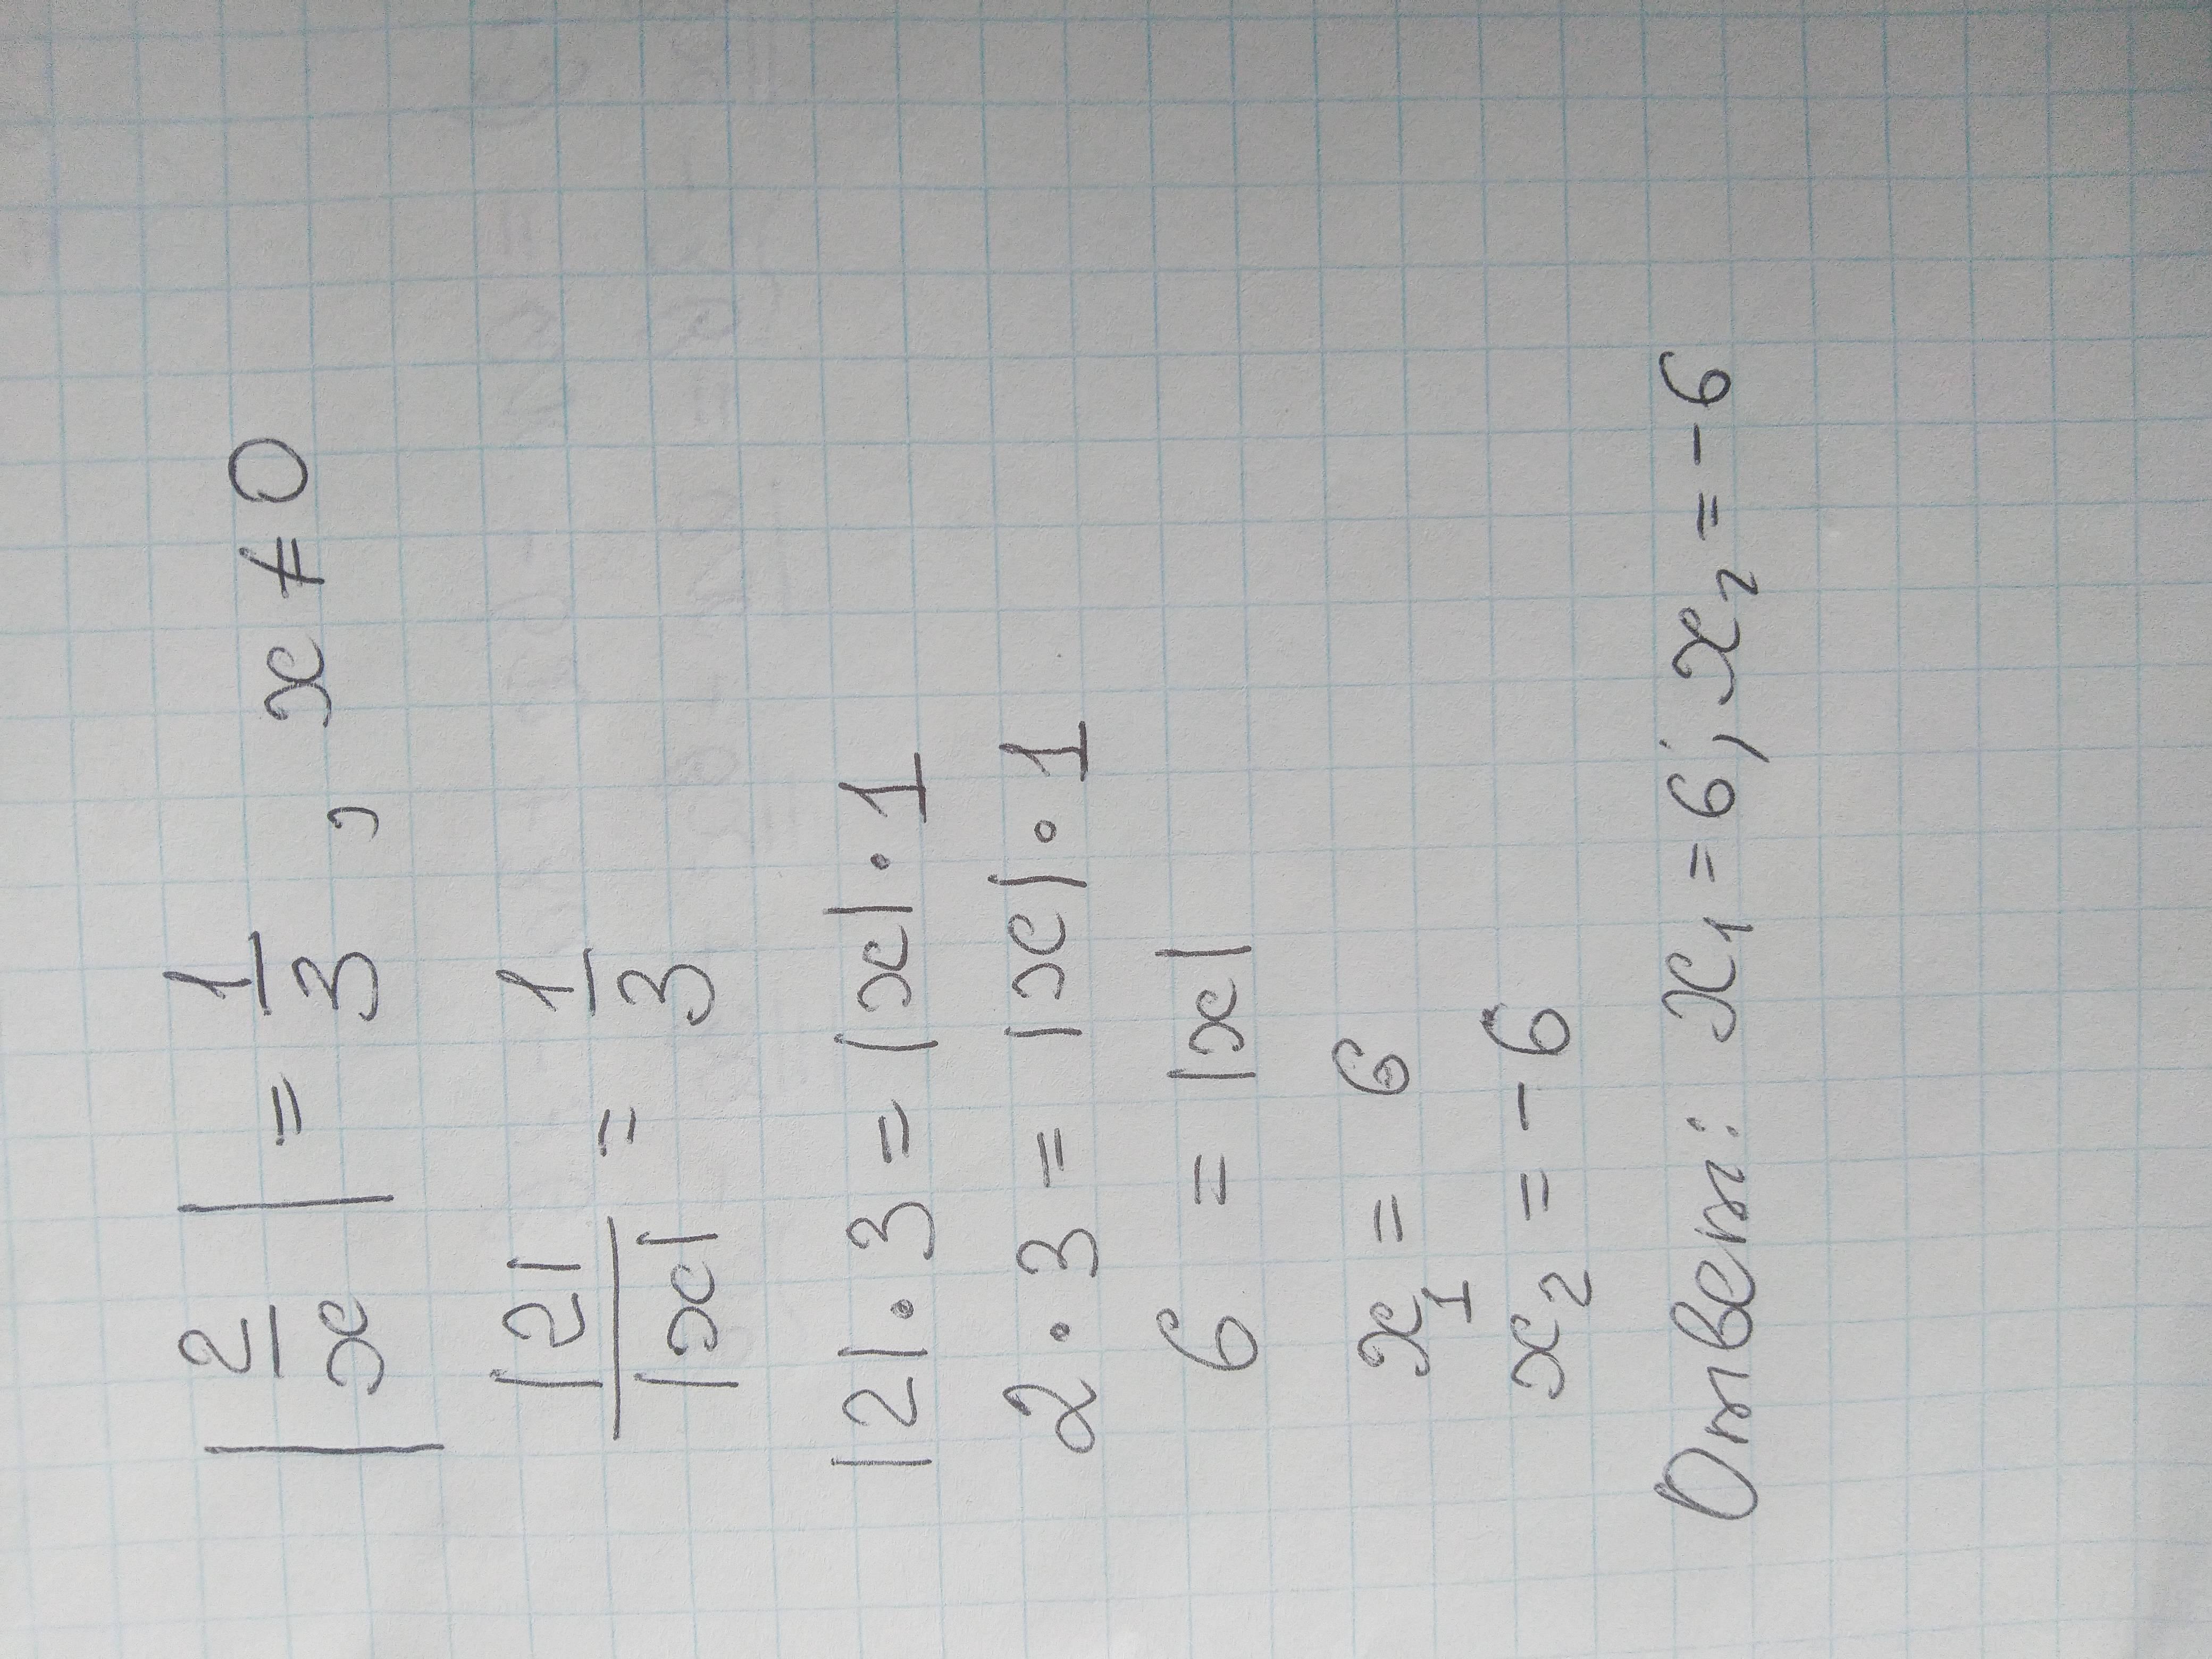 |2/x| = 1/3, x ≠ 0
|2|/|x| = 1/3
|2| · 3 = |x| · 1
2 · 3 = |x| · 1
6 = |x|
x₁ = 6
x₂ = -6
Ответ: x₁ = 6; x₂ = -6